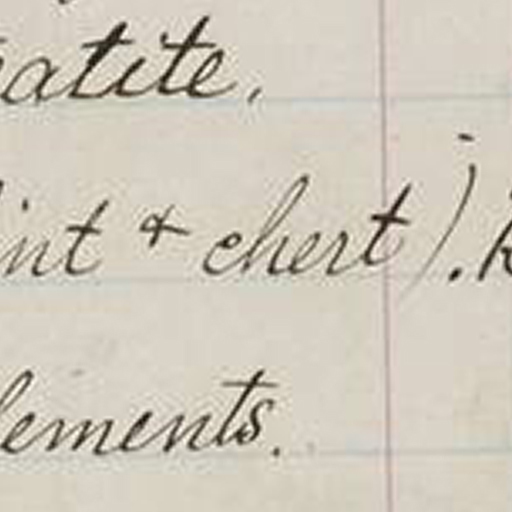 atite.
int & chert).
lements.